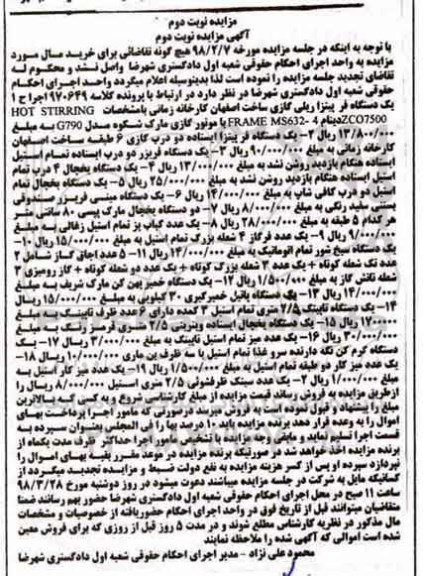 مزایده نوبت دوم
آگهی مزایده نوبت دوم
با توجه به اینکه در جلسه مزایده مورخه ۹۸/۲/۷ هیچ گونه تقاضائی برای خرید مال مورد
مزایده به واحد اجرای احکام حقوقی شعبه اول دادگستری شهرضا واصل نشد و محکوم له
تقاضای تجدید جلسه مزایده را نموده است لذا بدینوسیله اعلام میگردد واحد اجرای احکام
حقوقی شعبه اول دادگستری شهرضا در نظر دارد در ارتباط با پرونده کلاسه ۹۷۰۶۴۹ اجرا ح ۱
یک دستگاه فر پیتزا ریلی گازی ساخت اصفهان کارخانه زمانی بامشخصات HOT STIRRING
ZCO7500 دینام FRAME MS632- 4 با موتور گازی مارک شکوه مدل G790 به مبلغ
۱۳/۸۰۰/۰۰۰ ریال ۲- یک دستگاه فر پیتزا ایستاده دو درب گازی ۶ طبقه ساخت اصفهان
کارخانه زمانی به مبلغ ۹۰/۰۰۰/۰۰۰ ریال ۳- یک دستگاه فریزر دو درب ایستاده تمام استیل
ایستاده هنگام بازدید روشن نشد به مبلغ ۱۳/۰۰۰/۰۰۰ ریال ۴- یک دستگاه یخچال ۴ درب تمام
استیل ایستاده هنگام بازدید روشن نشد به مبلغ ۲۵/۰۰۰/۰۰۰ ریال ۵- یک دستگاه یخچال تمام
استیل دو درب کافی شاپ به مبلغ ۱۴/۰۰۰/۰۰۰ ریال ۶- یک دستگاه مینی فریزر صندوقی
پستنی سفید رنگی به مبلغ ۸/۰۰۰/۰۰۰ ریال ۷- دو دستگاه یخچال مارک پپسی ۸۰ سانتی متر
هر کدام ۵ طبقه به مبلغ ۲۸/۰۰۰/۰۰۰ ریال ۸- یک عدد کباب پز تمام استیل زغالی به مبلغ
۹/۰۰۰/۰۰۰ ریال ۹- یک عدد فرگاز ۴ شعله بزرگ تمام استیل به مبلغ ۱۵/۰۰۰/۰۰۰ ریال ۱۰-
یک دستگاه سیخ شور تمام اتوماتیک به مبلغ ۱۴/۰۰۰/۰۰۰ ریال ۱۱- ۵ عدد اجاق گاز شامل ۲
عدد تک شعله کوتاه + یک عدد ۳ شعله بزرگ کوتاه + یک عدد دو شعله کوتاه + گاز رومیزی ۳
شعله تاتش گاز به مبلغ ۱/۵۰۰/۰۰۰ ریال ۱۲- یک دستگاه خمیر پهن کن مارک شریف به مبلغ
۱۴/۰۰۰/۰۰۰ ریال ۱۳- یک دستگاه پاتیل خمیرگیری ۳۰ کیلویی به مبلغ ۱۵/۰۰۰/۰۰۰ ریال
۱۴- یک دستگاه تاپینگ ۲/۵ متری تمام استیل ۳ کمده دارای ۶ عدد ظرف تاپینگ به مبلغ
ریال ۱۵- یک دستگاه یخچال ایستاده ویترینی ۲/۵ متری قرمز رنگ به مبلغ
۳۰/۰۰۰/۰۰۰ ریال ۱۶- یک عدد میز تمام استیل تاپینگ به مبلغ ۳/۰۰۰/۰۰۰ ریال ۱۷- یک
دستگاه گرم کن نگه دارنده سرو غذا تمام استیل با سه ظرف بن ماری ۱۰/۰۰۰/۰۰۰ ریال ۱۸-
یک عدد میز کار دو طبقه تمام استیل به مبلغ ۱/۵۰۰/۰۰۰ ریال ۱۹- یک عدد میز کار استیل به
مبلغ ۱/۰۰۰/۰۰۰ ریال ۲۰- یک عدد سینک ظرفشوئی ۲/۵ متری استیل ۸/۰۰۰/۰۰۰ ریال را
ازطریق مزایده به فروش رساند قیمت مزایده از مبلغ کارشناسی شروع و به کسی که بالاترین
مبلغ را پیشنهاد و قبول نموده است به فروش میرسد درصورتی که مامور اجرا پرداخت بهای
اموال را به وعده قرار دهد برنده مزایده باید ۱۰ درصد بها را فی المجلس بعنوان سپرده به
قسمت اجرا تسلیم نماید و مابقی وجه مزایده با تشخیص مامور اجرا حداکثر ظرف مدت یکماه از
برنده مزایده اخذ خواهد شد در صورتیکه برنده مزایده در موعد مقرر بقیه بهای اموال را
نپردازد سپرده او پس از کسر هزینه مزایده به نفع دولت ضبط و مزایده تجدید میگردد از
کسانیکه مایل به شرکت در جلسه مزایده میباشند دعوت میشود در روز دوشنبه مورخ ۹۸/۳/۲۸
ساعت ۱۱ صبح در محل اجرای احکام حقوقی شعبه اول دادگستری شهرضا حضور بهم رسانند ضمنا
متقاضیان میتوانند قبل از تاریخ فوق در واحد اجرای احکام حضوریافته از خصوصیات و مشخصات
مال مذکور در نظریه کارشناسی مطلع شوند و در مدت ۵ روز قبل از روزی که برای فروش معین
شده است اموالی که آگهی شده را ملاحظه نمایند
محمود علی نژاد - مدیر اجرای احکام حقوقی شعبه اول دادگستری شهرضا